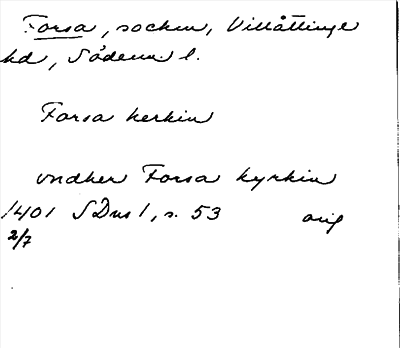 Forsa, socken, Villåttinge
hd, Söderm l.
Forsa kerkiu
vndher Forsa kyrkiu
1401 SDns 1, s. 53 orig
2/7